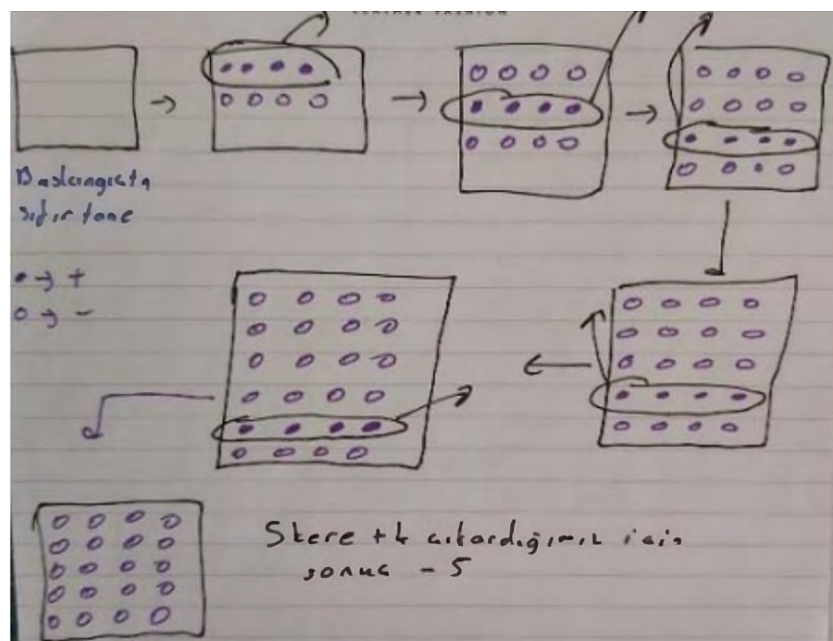 Baslangıcta
sıfır tane
● → +
o → -
5kere +4 cıkardığımız icin
sonuc - 5